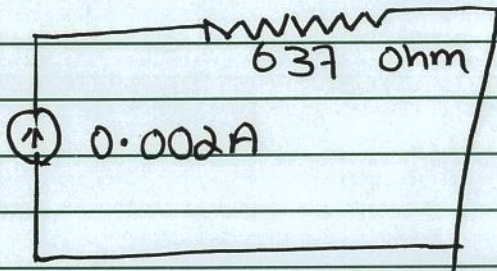 637 ohm
0.002A